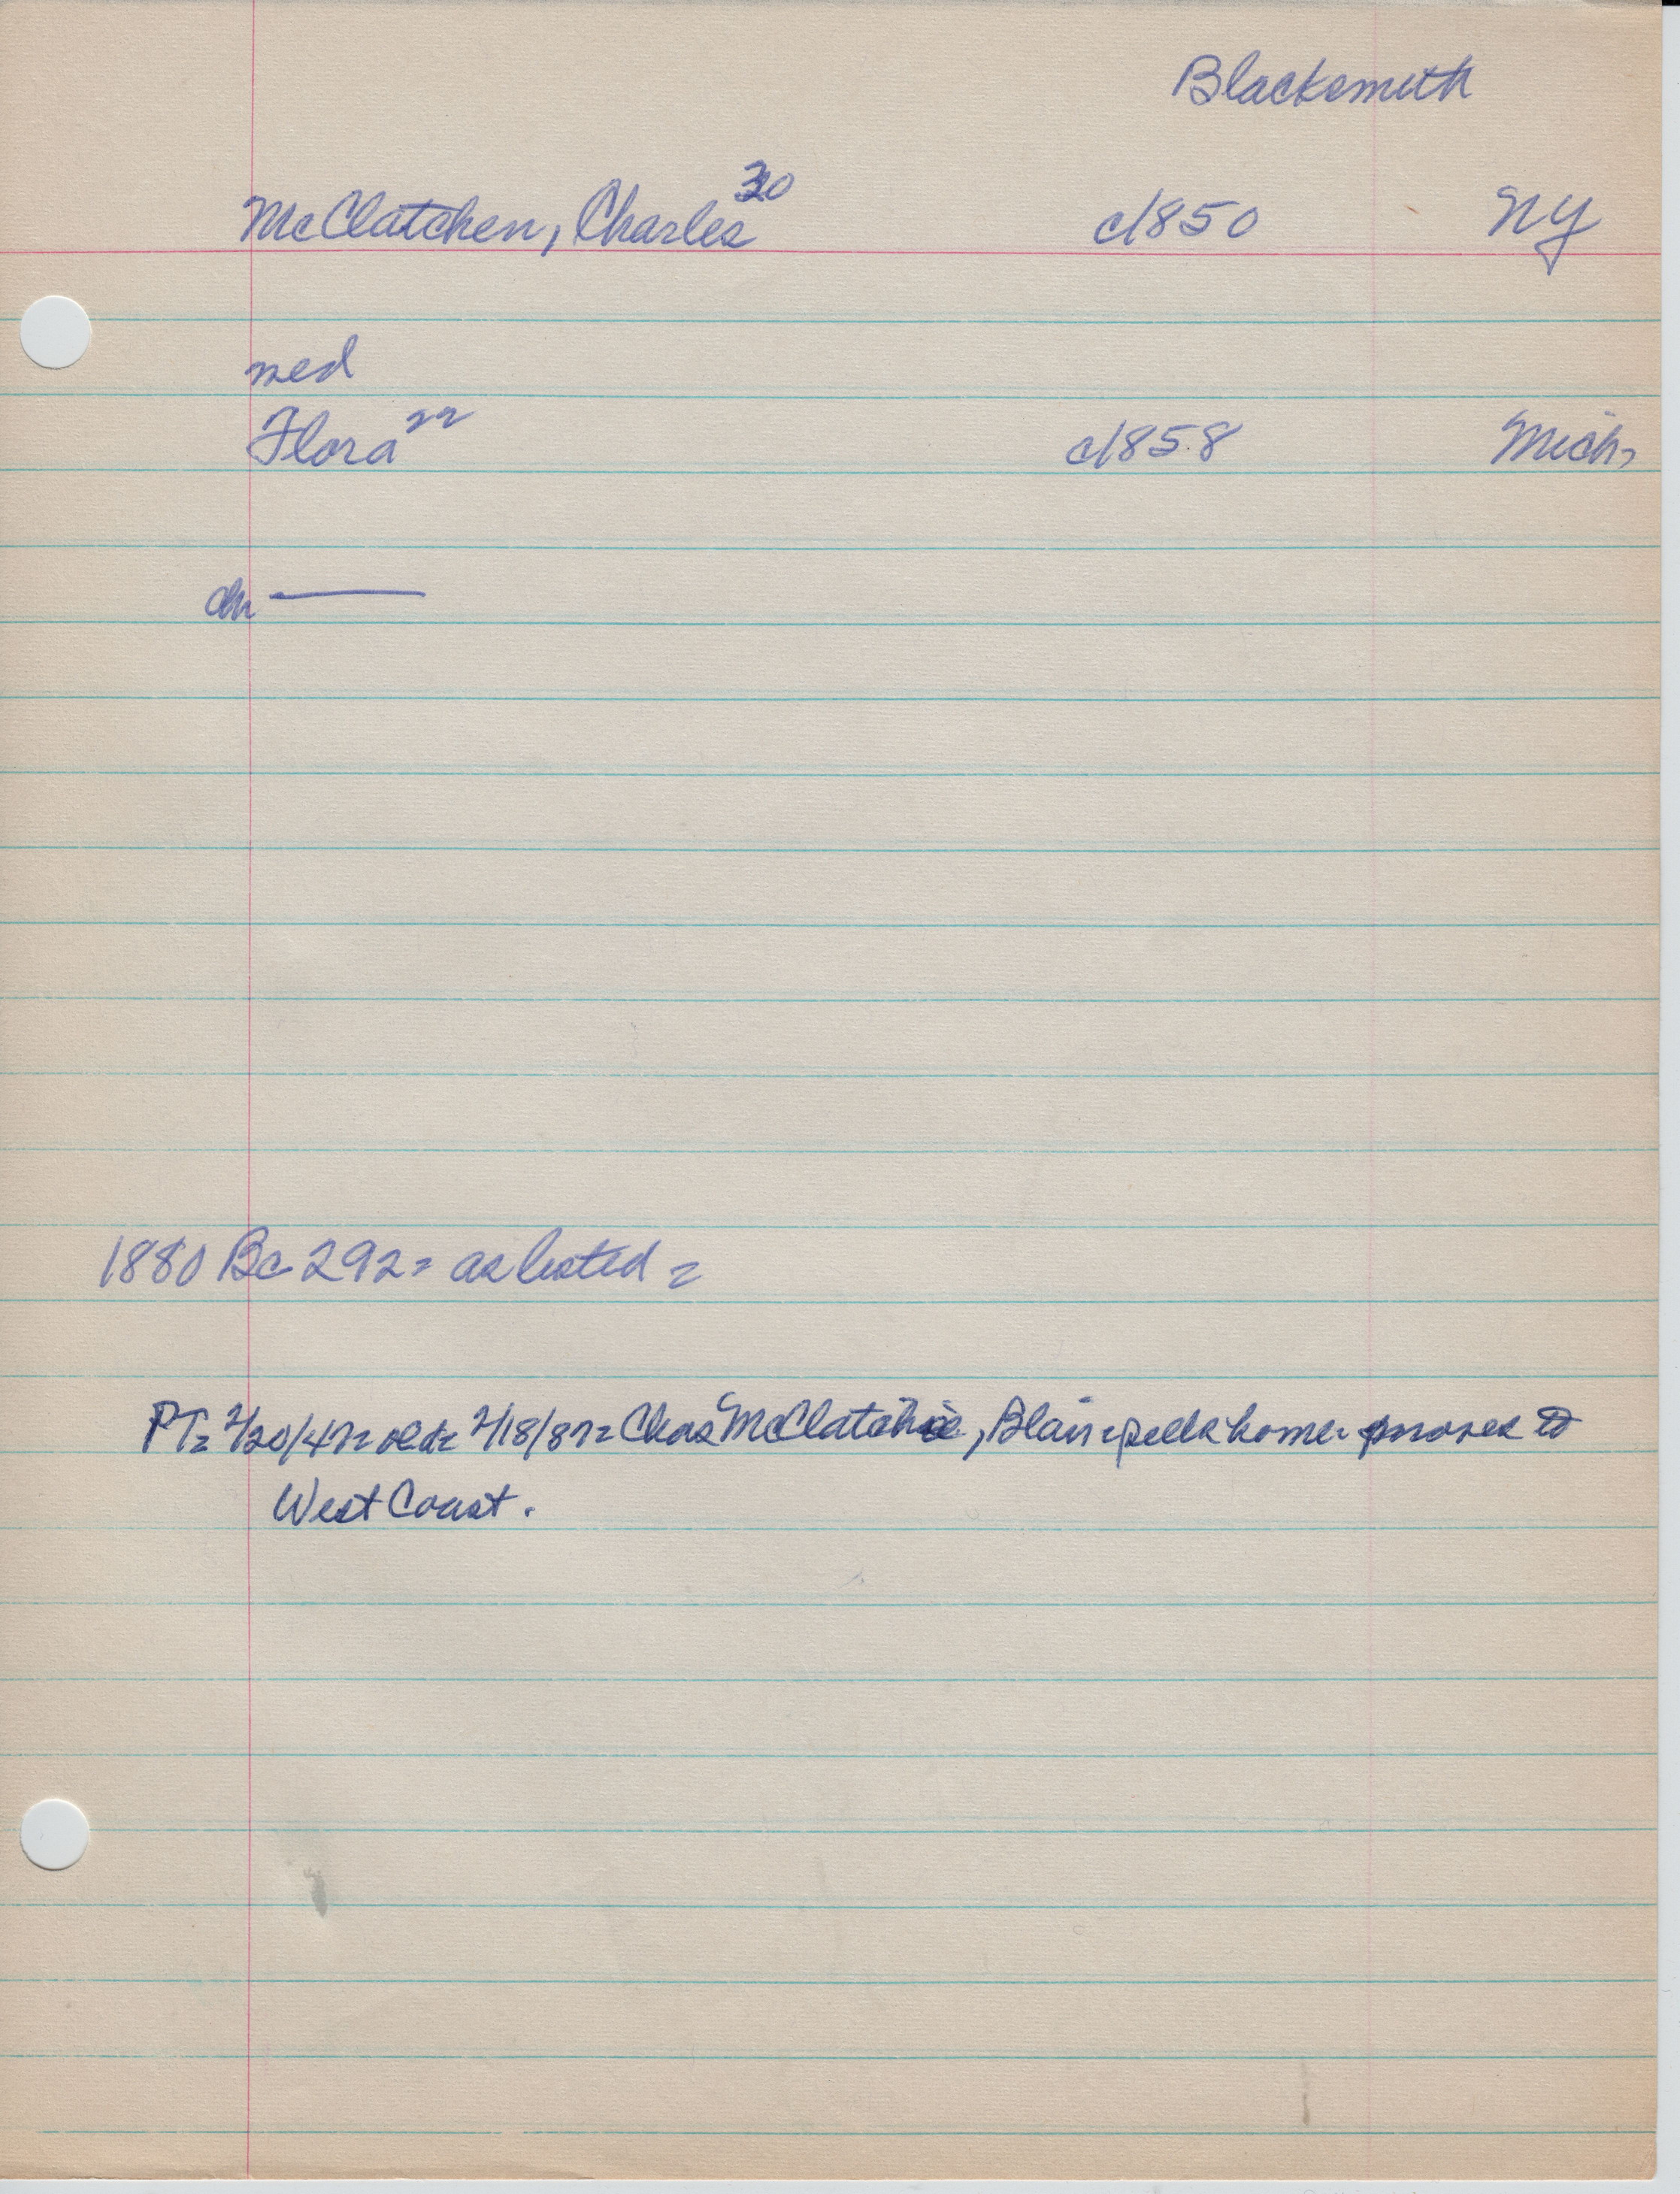 Blacksmith
McClatchen, Charles 30 c1850 NY
med
Flora 22 c1858 Mich.
ch —
1880 Bc 292 = as listed =
PT = 2/20/47 = old = 2/18/87 = Chas McClatchie, Blair = sells home = moves to
West Coast.